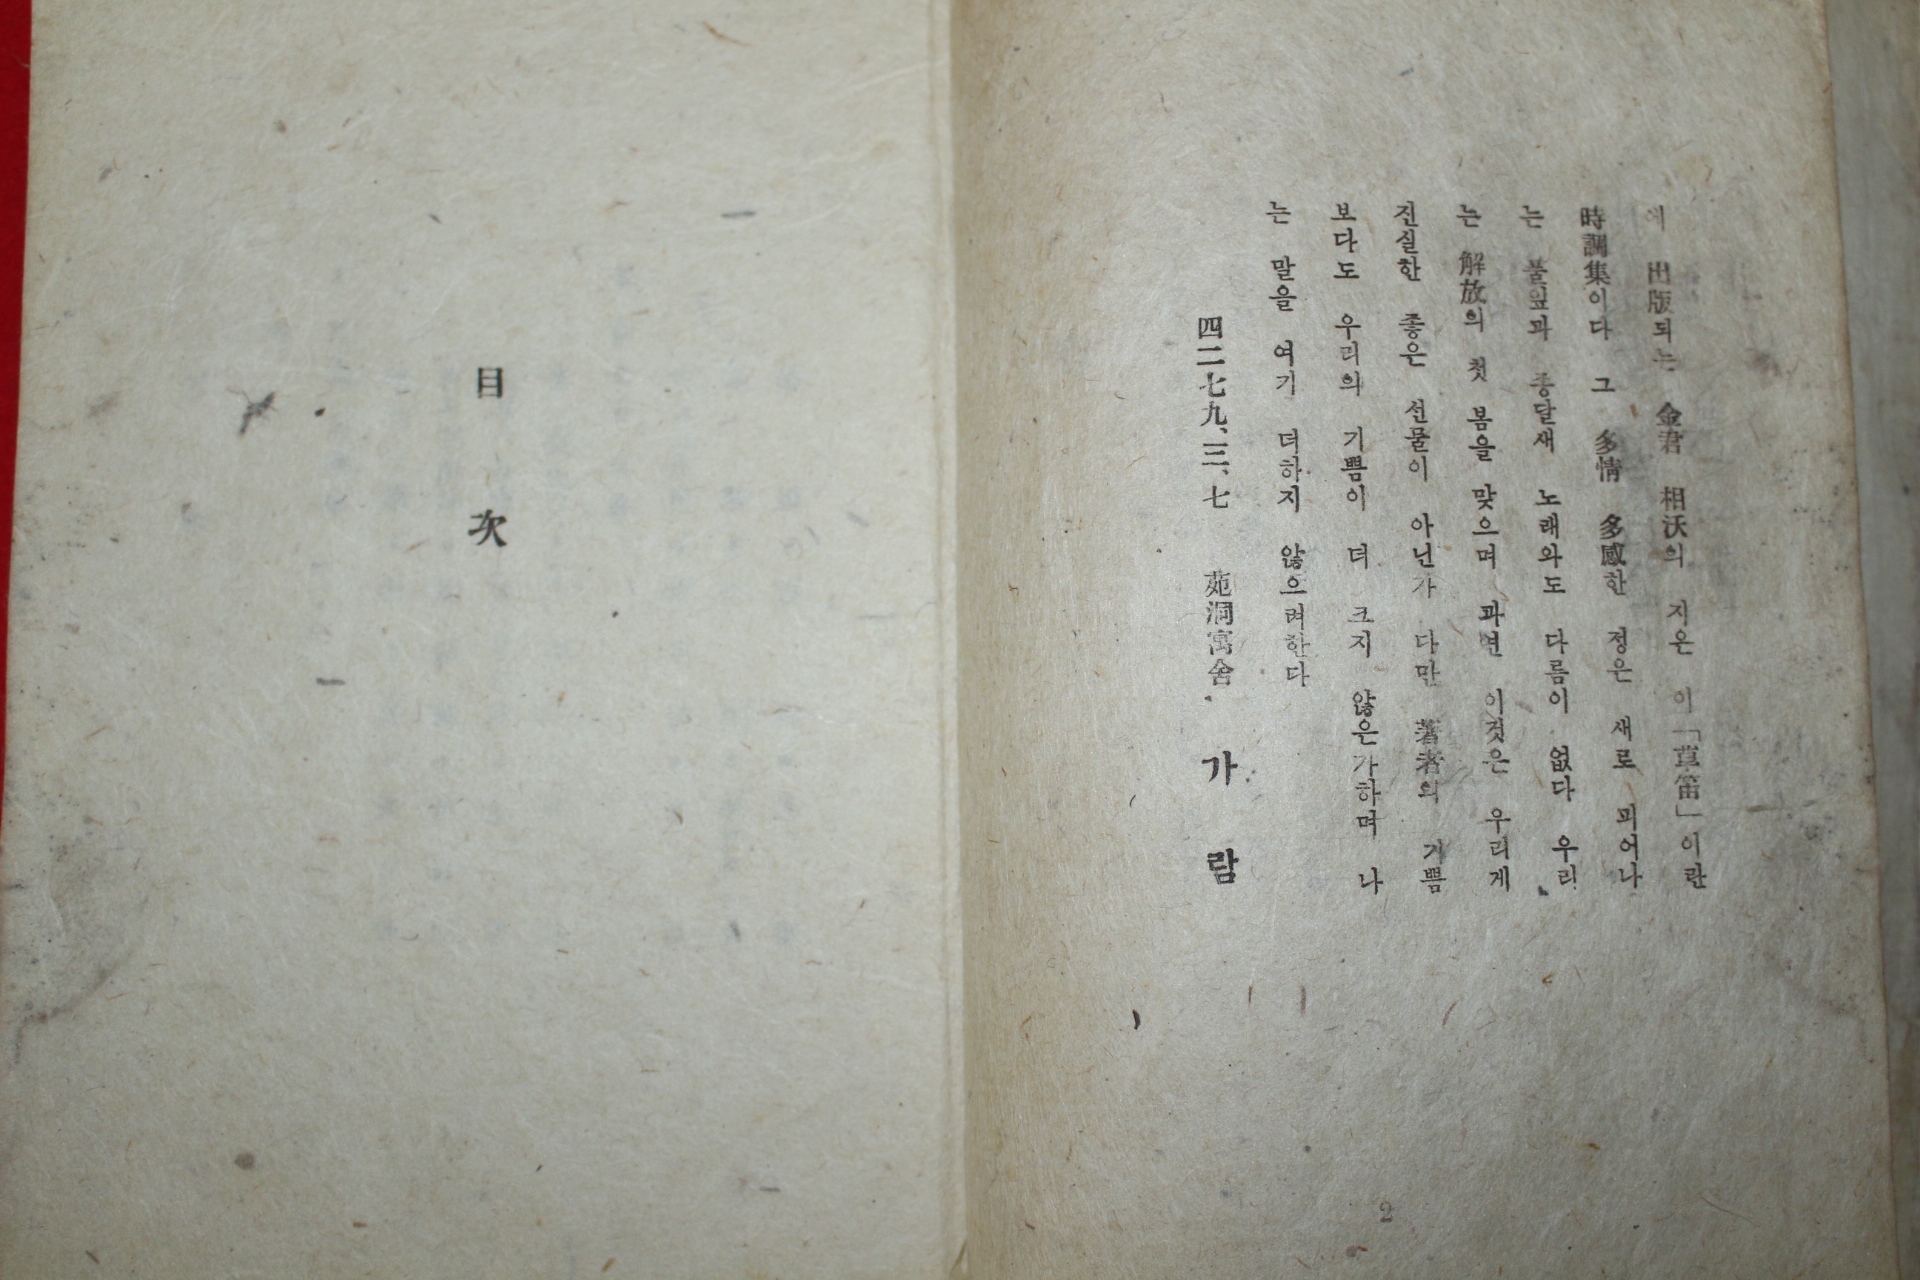 에 出版되는 金君 相沃의 지은 이「草笛」이란
時調集이다 그 多情 多感한 정은 새로 피어나
는 풀잎과 종달새 노래와도 다름이 없다 우리
는 解放의 첫 봄을 맞으며 과연 이것은 우리게
진실한 좋은 선물이 아닌가 다만 著者의 기쁨
보다도 우리의 기쁨이 더 크지 않은가하며 나
는 말을 여기 더하지 않으려한다
四二七九、三、七 苑洞寓舍 가람
2
目次